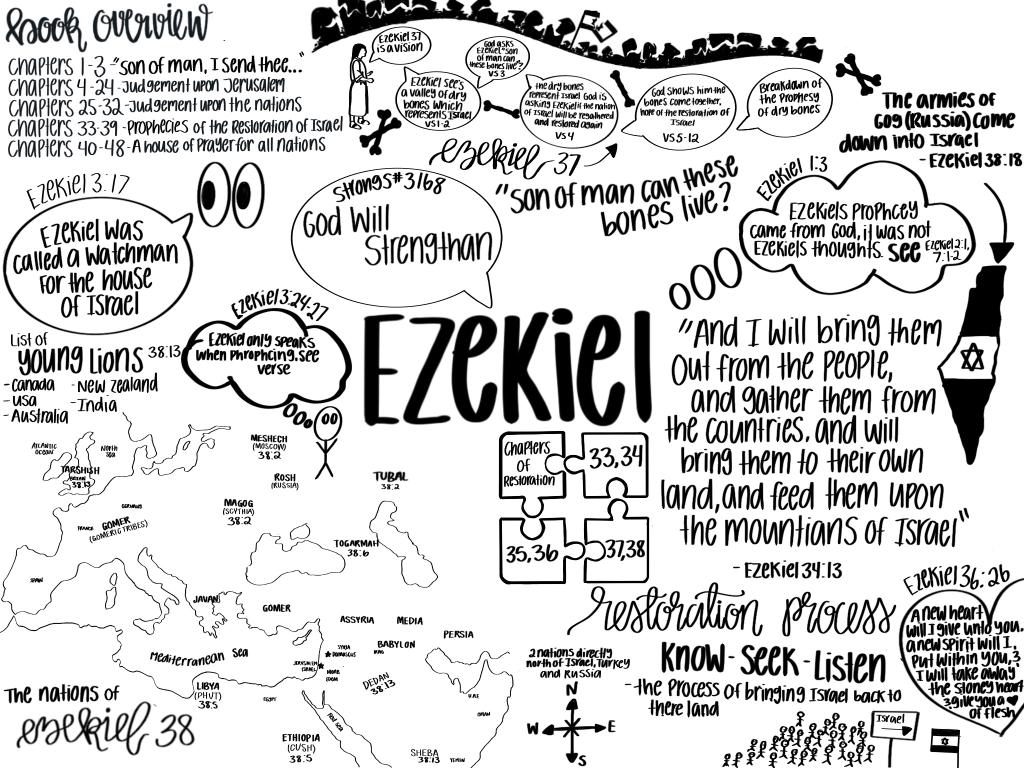 book overview
Chapters 1-3-"son of man, I send thee..."
Chapters 4-24-Judgement upon Jerusalem
Chapters 25-32-Judgement upon the nations
Chapters 33-39-Prophecies of the Restoration of Israel
Chapters 40-48-A house of Prayer for all nations
Ezekiel 37
is a vision
Ezekiel see's
a valley of dry
bones which
represents Israel
vs 1-2
God asks
Ezekiel "son
of man can
these bones live?
vs 3
the dry bones
represent Israel God is
asking Ezekiel if the nation
of Israel will be regathered
and restored again
vs 4
God shows him the
bones come together,
hope of the restoration of
Israel
vs 5-12
Breakdown of
the Prophesy
of dry bones
ezekiel 37
The armies of
Gog (Russia) come
down into Israel
- Ezekiel 38:18
Ezekiel 3:17
Ezekiel was
called a watchman
for the house
of Israel
Strongs#3168
God Will
Strengthan
"son of man can these
bones live?
Ezekiel 1:3
Ezekiels prophcey
came from God, it was not
Ezekiels thoughts. see Ezekiel 2:1,
7:1-2
Ezekiel 3:24-27
Ezekiel only speaks
when phrophcing. see
verse
List of
young lions 38:13
-Canada -New Zealand
-USA -India
-Australia
Ezekiel
"And I will bring them
Out from the people,
and gather them from
the countries. and will
bring them to their own
land, and feed them upon
the mountians of Israel"
- Ezekiel 34:13
Chapters
of
Restoration
33,34
35,36
37,38
Atlantic
Ocean
North
Sea
Tarshish
Britain
38:13
Germany
France
Gomer
(Gomeric Tribes)
Spain
Meshech
(Moscow)
38:2
Rosh
(Russia)
Tubal
38:2
Magog
(Scythia)
38:2
Togarmah
38:6
Javan
Gomer
Assyria
Media
Persia
Syria
Damascus
Babylon
Iraq
Jerusalem
Israel
Moab
Edom
Dedan
38:13
Mediterranean Sea
Libya
(Phut)
38:5
Egypt
Red Sea
UAE
Oman
Ethiopia
(Cush)
38:5
Sheba
38:13
Yemen
The nations of
ezekiel 38
2 nations directly
north of Israel, Turkey
and Russia
N
W
E
S
restoration process
Know-Seek-Listen
-the process of bringing Israel back to
there land
Israel
Ezekiel 36:26
A new heart
will I give unto you.
a new spirit will I
put within you, &
I will take away
the stoney heart
& give you a
of flesh